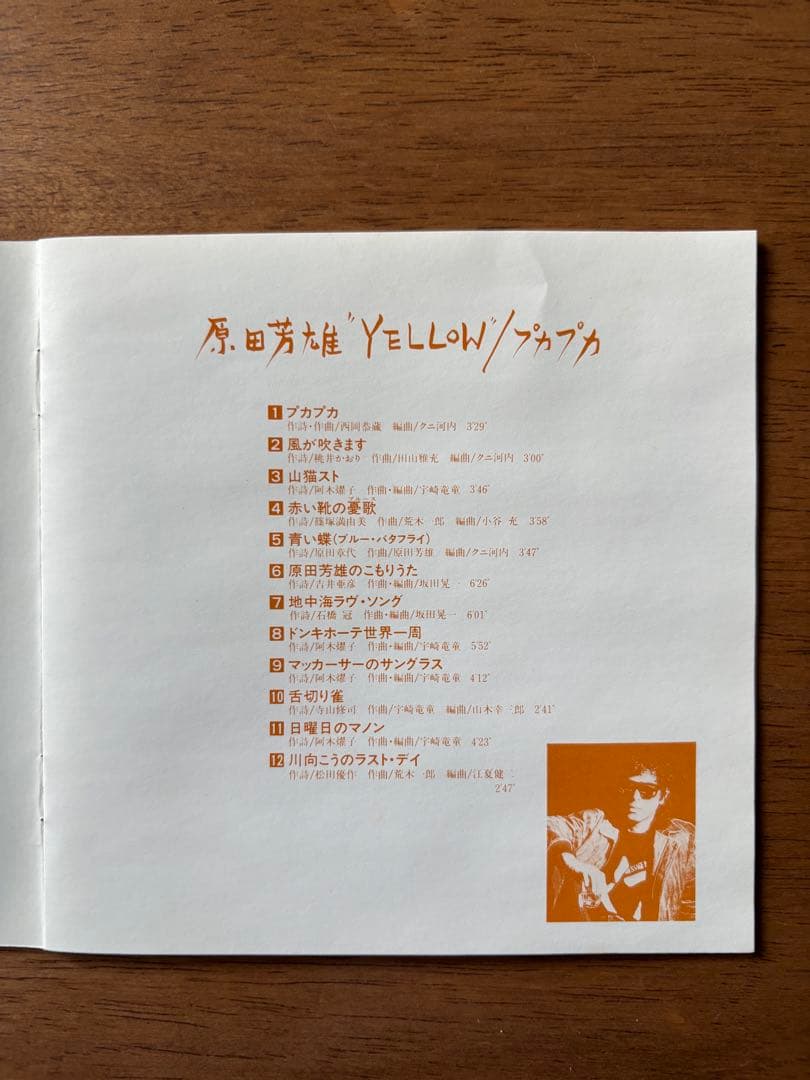 原田芳雄"YELLOW"/プカプカ
1 プカプカ
作詩・作曲/西岡恭蔵 編曲/クニ河内 3'29"
2 風が吹きます
作詩/桃井かおり 作曲/田山雅充 編曲/クニ河内 3'00"
3 山猫スト
作詩/阿木燿子 作曲・編曲/宇崎竜童 3'46"
4 赤い靴の憂歌
ブルース
作詩/篠塚満由美 作曲/荒木一郎 編曲/小谷 充 3'58"
5 青い蝶(ブルー・バタフライ)
作詩/原田章代 作曲/原田芳雄 編曲/クニ河内 3'47"
6 原田芳雄のこもりうた
作詩/吉井亜彦 作曲・編曲/坂田晃一 6'26"
7 地中海ラヴ・ソング
作詩/石橋 冠 作曲・編曲/坂田晃一 6'01"
8 ドンキホーテ世界一周
作詩/阿木燿子 作曲・編曲/宇崎竜童 5'52"
9 マッカーサーのサングラス
作詩/阿木燿子 作曲・編曲/宇崎竜童 4'12"
10 舌切り雀
作詩/寺山修司 作曲/宇崎竜童 編曲/山木幸三郎 2'41"
11 日曜日のマノン
作詩/阿木燿子 作曲・編曲/宇崎竜童 4'23"
12 川向こうのラスト・デイ
作詩/松田優作 作曲/荒木一郎 編曲/江夏健二
2'47"